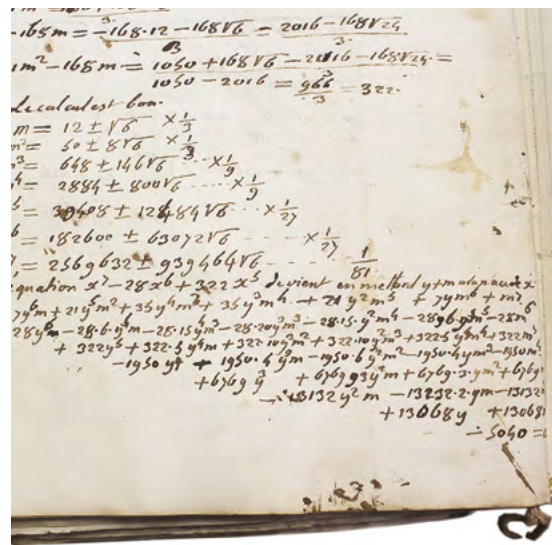 -168m = -168·12 - 168√6 = 2016 - 168√24
3 3
m² - 168m = 1050 + 168√6 - 2016 - 168√24 =
1050 - 2016 = 966 = 322.
3
le calcul est bon.
m = 12 ± √6 × 1/3
m² = 50 ± 8√6 × 1/3
m³ = 648 ± 146√6 ... × 1/9
= 2884 ± 800√6 .... × 1/9
= 39408 ± 12484√6 ... × 1/27
= 182600 ± 63072√6 ..... × 1/27
= 2569632 ± 939464√6 ...... 1/81
equation x⁷ - 28x⁶ + 322x⁵ devient en mettant y + m a la place de x
7y⁶m + 21y⁵m² + 35y⁴m³ + 35y³m⁴ + 21y²m⁵ + 7ym⁶ + m⁷
28y⁶ - 28·6·y⁵m - 28·15y⁴m² - 28·20y³m³ - 28·15·y²m⁴ - 28·6·ym⁵ - 28m⁶
+ 322y⁵ + 322·5y⁴m + 322·10y³m² + 322·10y²m³ + 322·5y m⁴ + 322m⁵
- 1950y⁴ - 1950·4y³m - 1950·6y²m² - 1950·4ym³ - 1950m⁴
+ 6769y³ + 6769·3y²m + 6769·3·ym² + 6769
- 13132y²m - 13232·2·ym - 13132
+ 13068y + 13068
- 5040 =